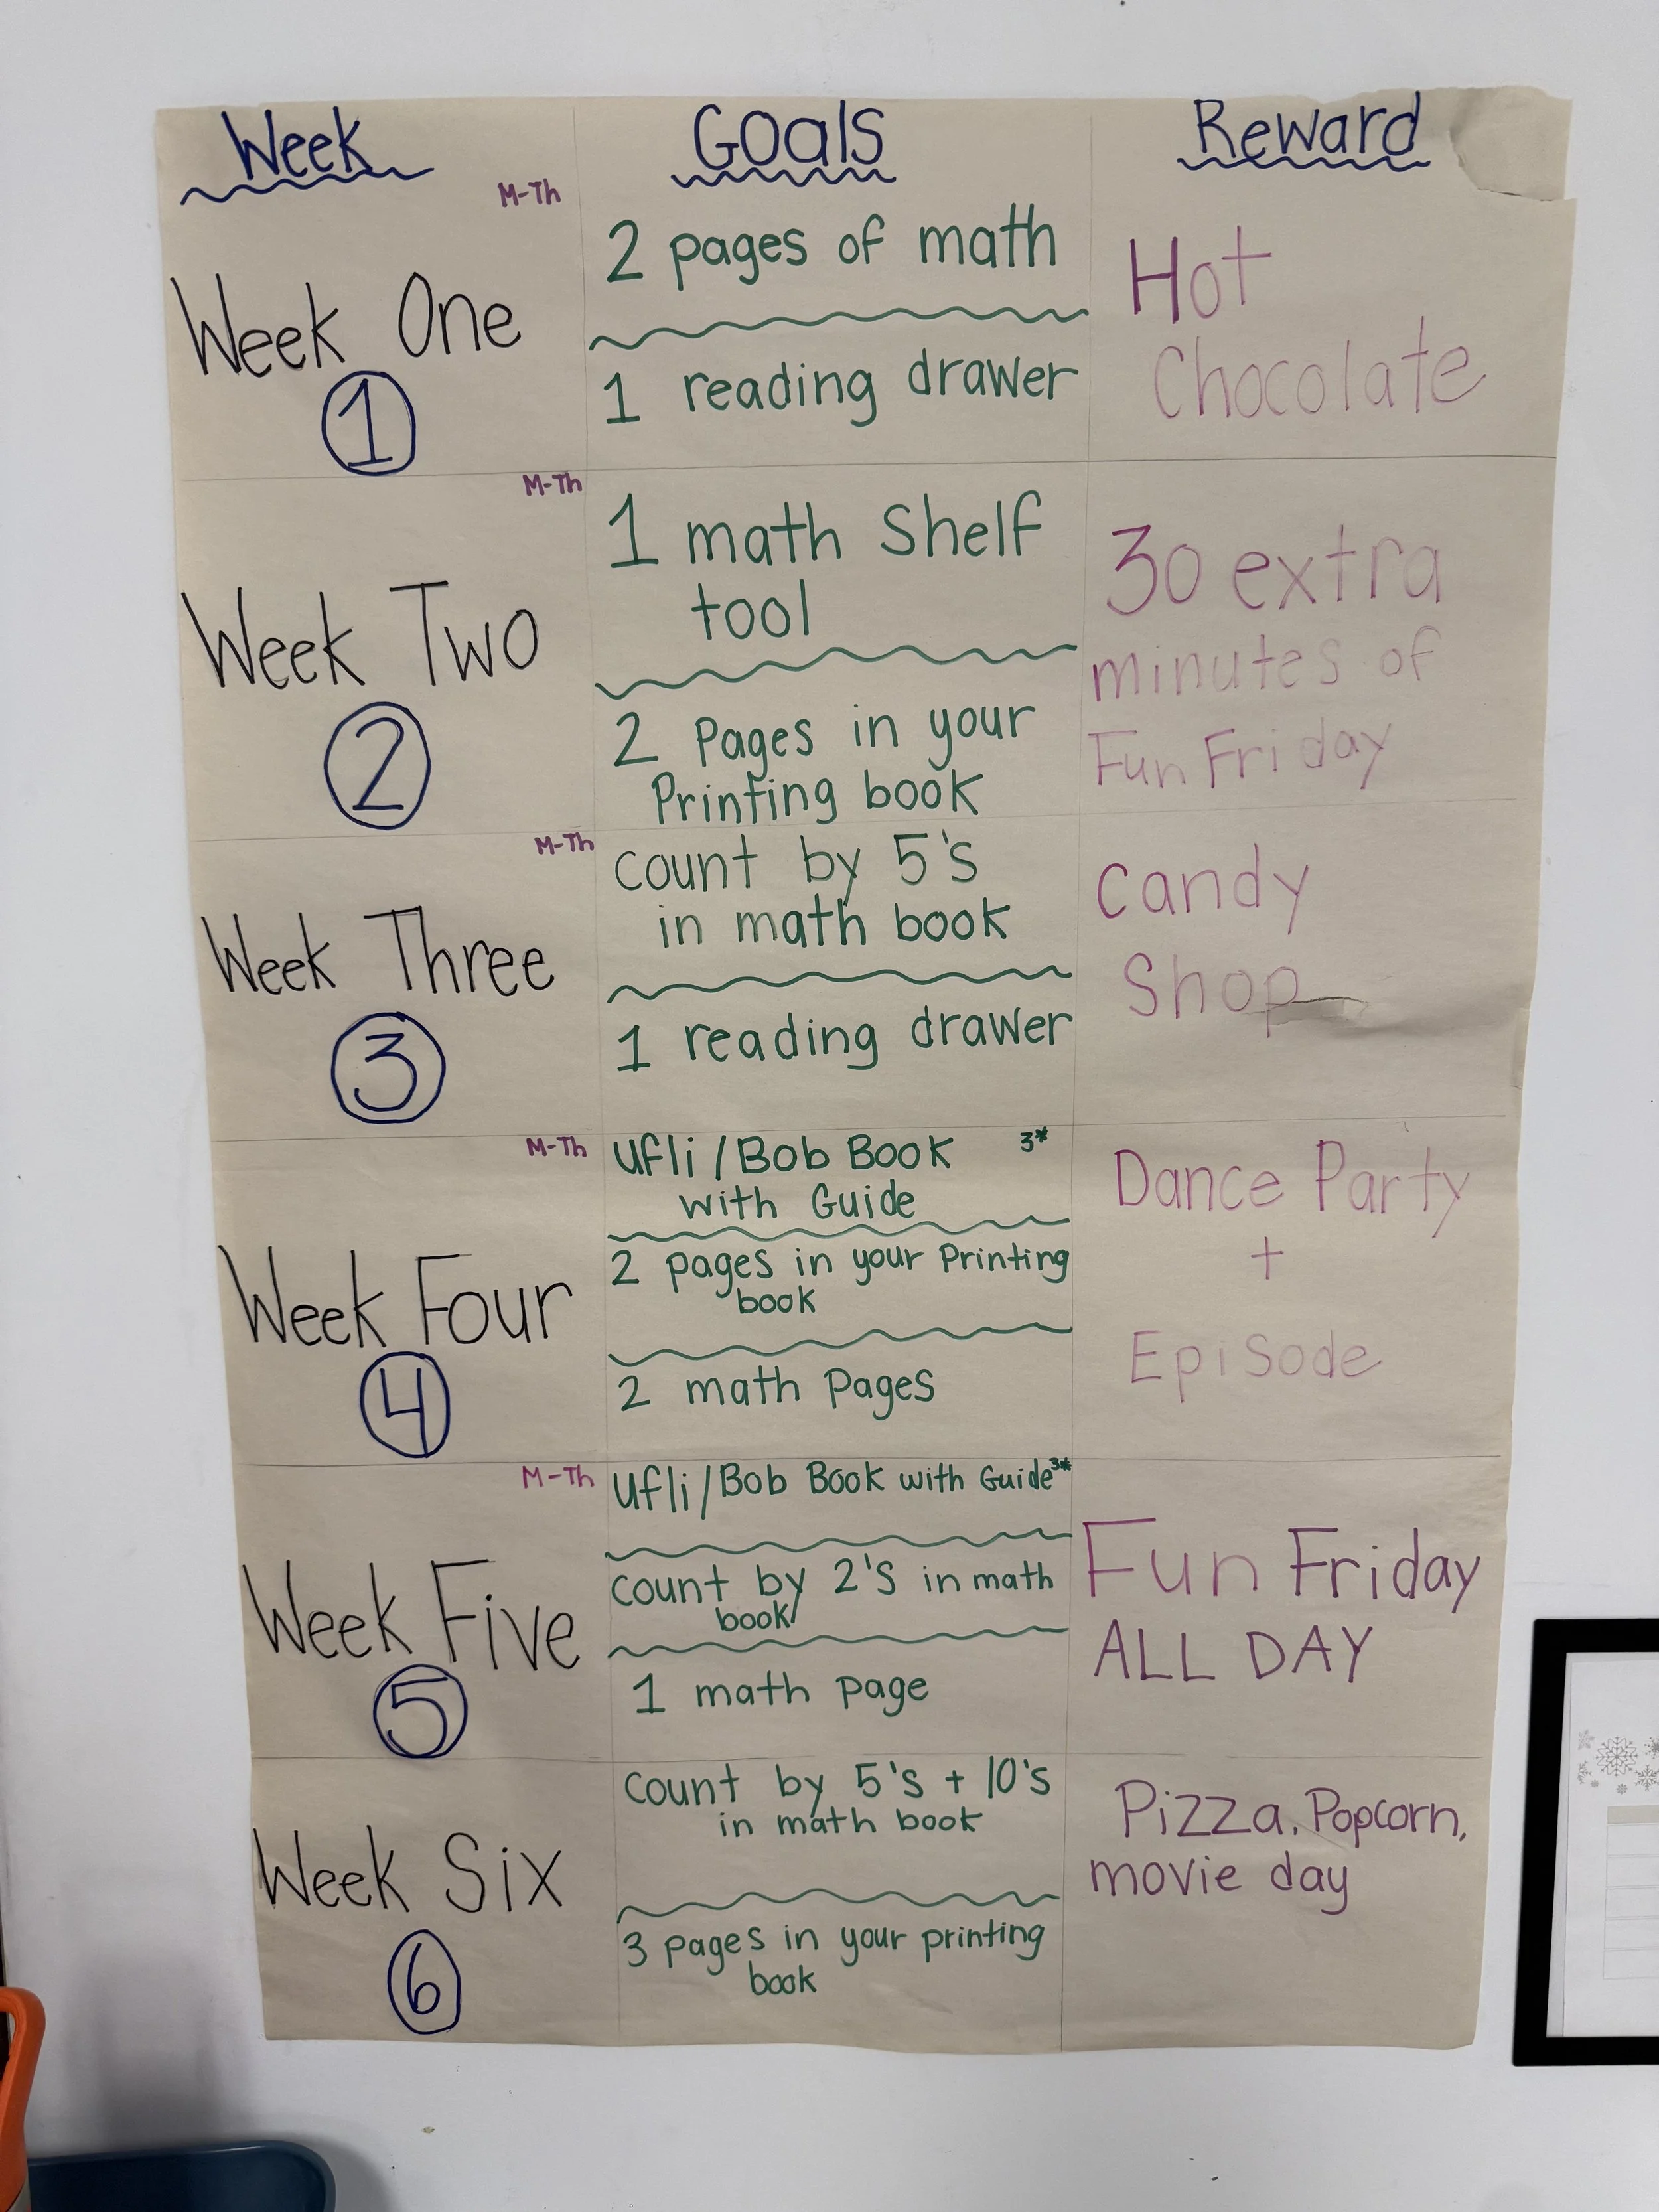 Week
Goals
Reward
M-Th
Week One
1
2 pages of math
1 reading drawer
Hot
Chocolate
M-Th
Week Two
2
1 math Shelf
tool
2 Pages in your
Printing book
30 extra
minutes of
Fun Friday
M-Th
Week Three
3
count by 5's
in math book
1 reading drawer
candy
Shop
M-Th
Week Four
4
Ufli/Bob Book 3*
with Guide
2 pages in your Printing
book
2 math Pages
Dance Party
+
Episode
M-Th
Week Five
5
Ufli/Bob Book with Guide 3*
count by 2's in math
book
1 math page
Fun Friday
ALL DAY
Week Six
6
count by 5's + 10's
in math book
3 pages in your printing
book
Pizza, Popcorn,
movie day